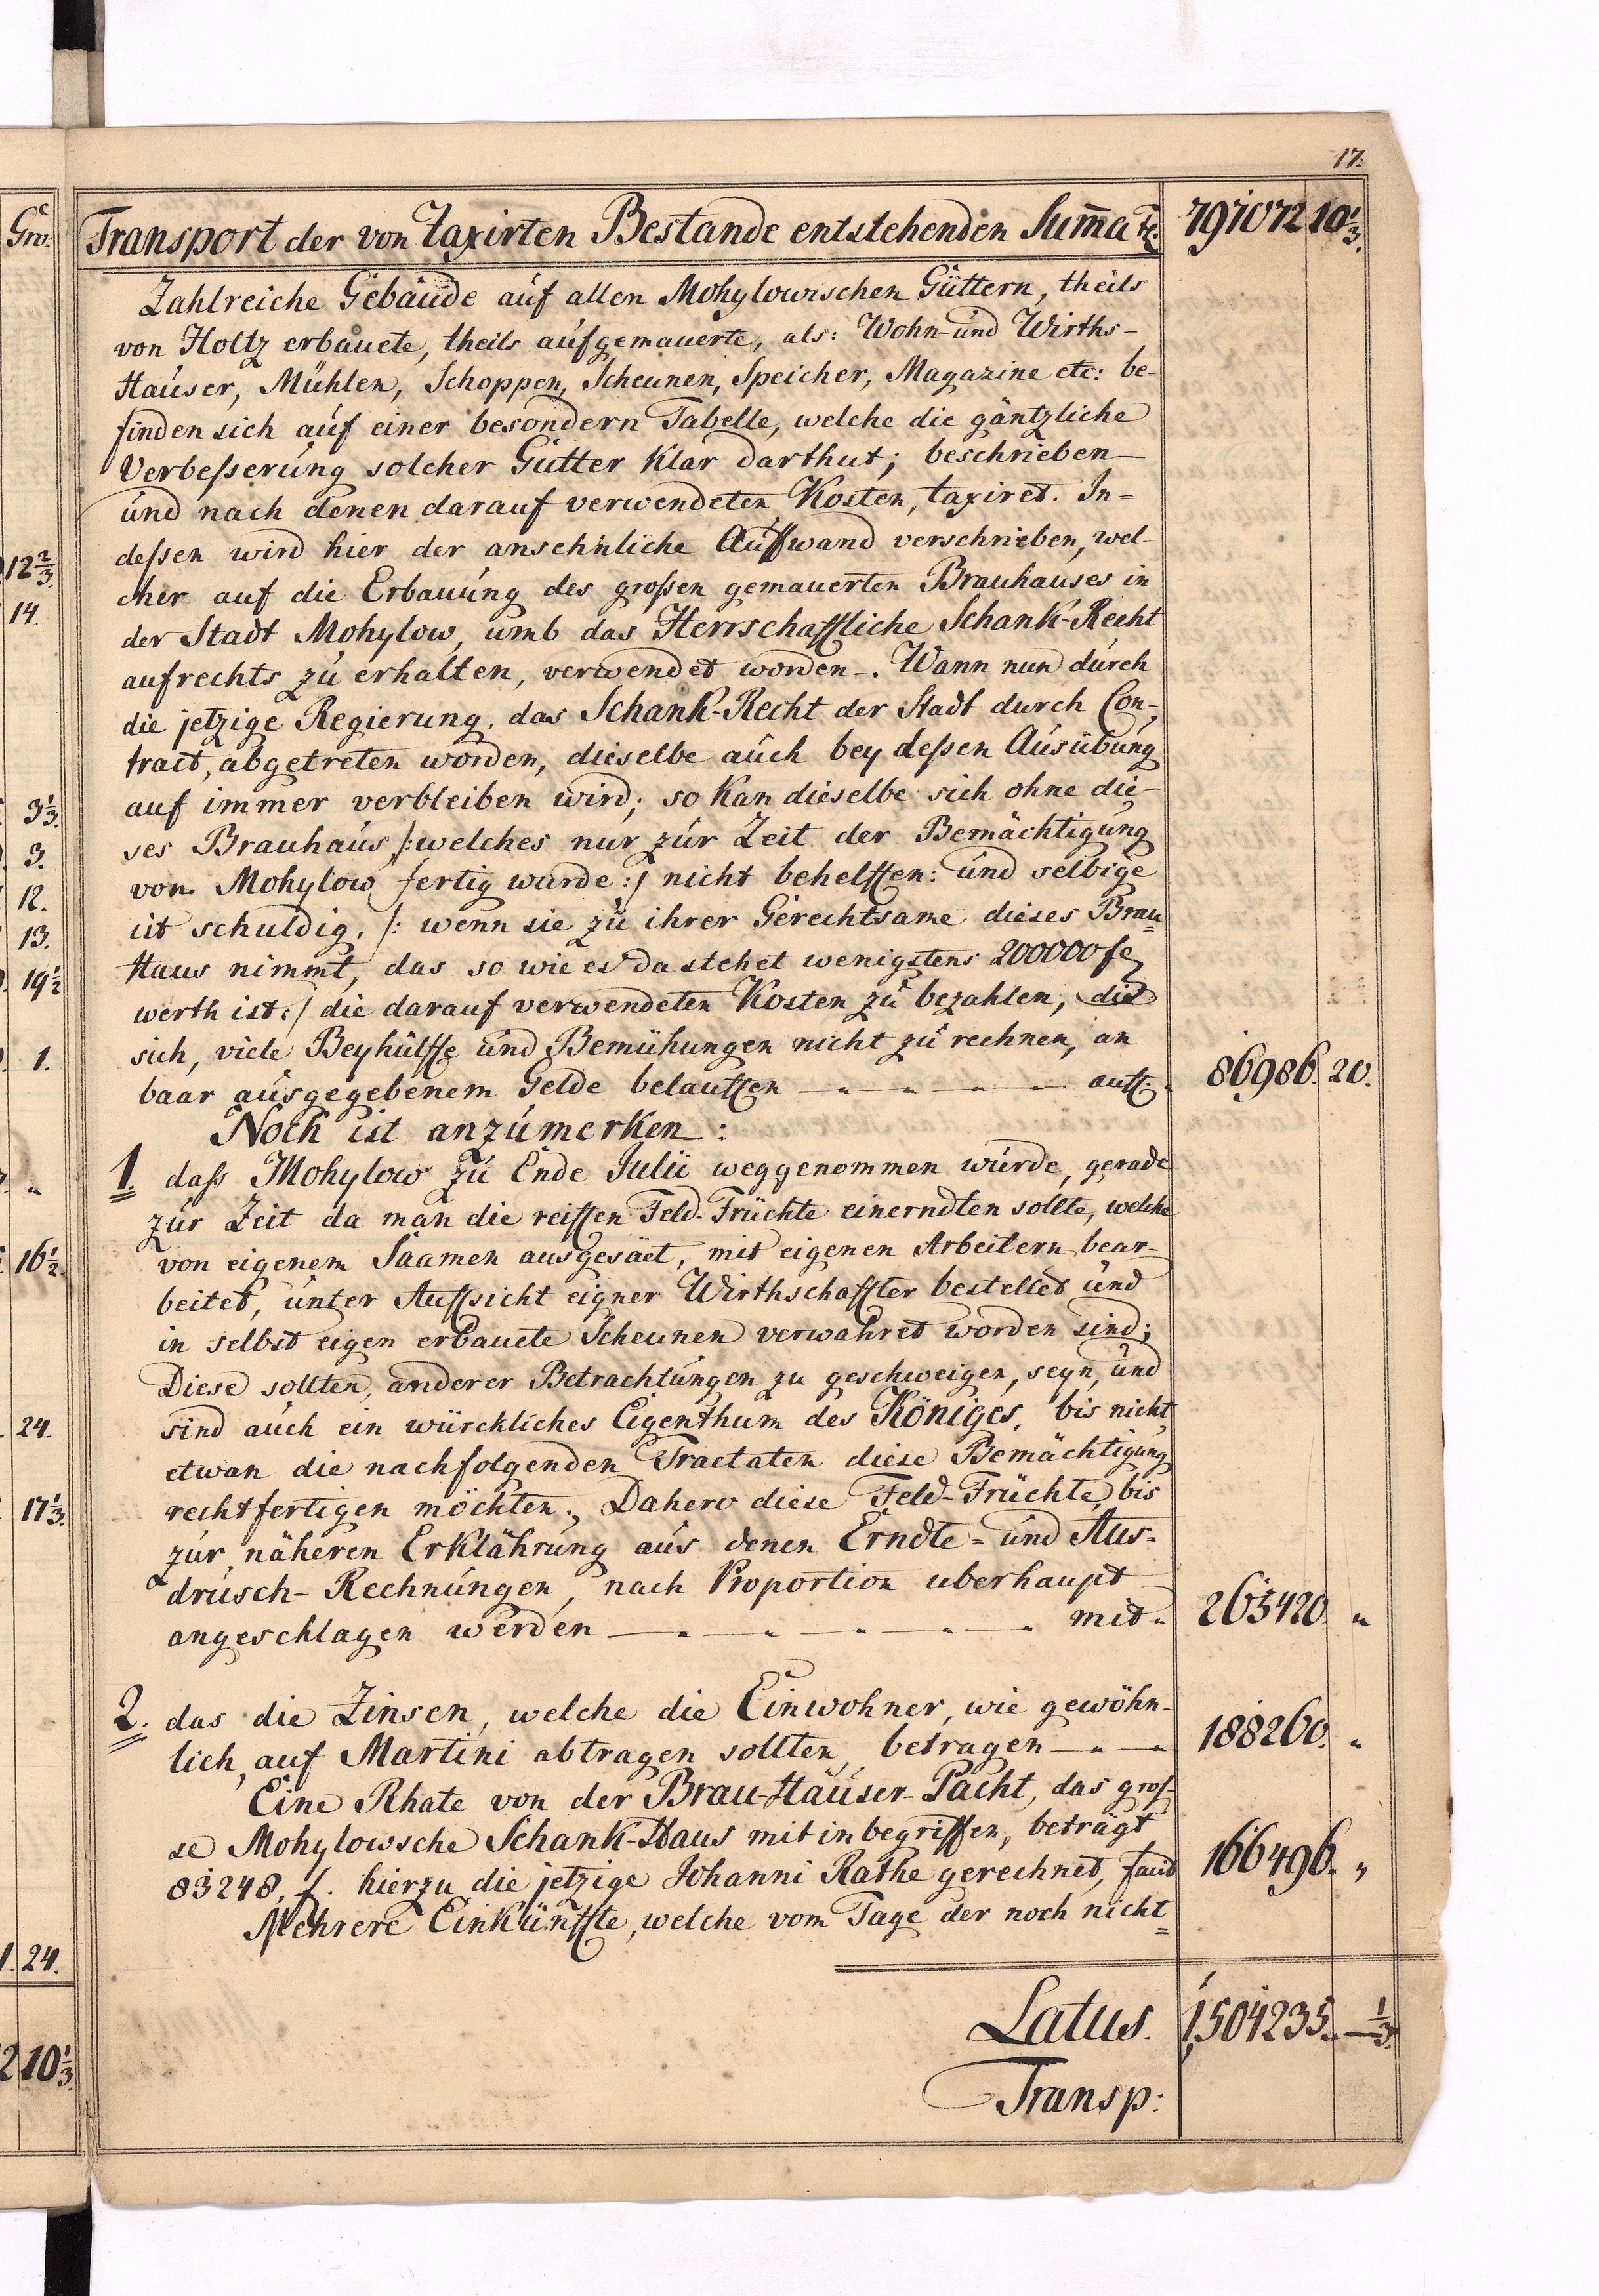 17.
Gro:
Transport der von taxirten Bestande entstehenden Sum̄a 791072 10⅓.
Zahlreiche Gebäude auf allen Mohylowischen Güttern, theils
von Holtz erbauete, theils aufgemauerte, als: Wohn- und Wirths-
Hauser, Mühlen, Schoppen, Scheunen, Speicher, Magazine etc: be-
finden sich auf einer besondern Tabelle, welche die gäntzliche
Verbeßerung solcher Gütter klar darthut; beschrieben
und nach denen darauf verwendeten Kosten, taxiret. In=
deßen wird hier der ansehnliche Auffwand verschrieben, wel-
12⅔.
cher auf die Erbauung des großen gemauerten Brauhauses in
14.
der Stadt Mohylow, umb das Herrschaffliche Schank-Recht
aufrechts zu erhalten, verwendet worden-. Wann nun durch
die jetzige Regierung, das Schank-Recht der Stadt durch Con-
tract, abgetreten worden, dieselbe auch bey deßen Ausübung
auf immer verbleiben wird; so kan dieselbe sich ohne die-
3⅓.
ses Brauhaus /: welches nur zur Zeit der Bemächtigung
3.
von Mohylow fertig wurde :/ nicht behelffen: und selbige
12.
ist schuldig, /: wenn sie zu ihrer Gerechtsame dieses Brau=
13.
Haus nimmt, das so wie es da stehet wenigstens 200000 f
19½
werth ist :/ die darauf verwendeten Kosten zu bezahlen, die
sich, viele Beyhülffe und Bemühungen nicht zu rechnen, an
1.
baar ausgegebenem Gelde belauffen — „ — „ — „ — auff. 86986. 20.
Noch ist anzumerken:
1. daß Mohylow zu Ende Julii weggenommen wurde, gerade
zur Zeit da man die reiffen Feld-Früchte einerndten sollte, welche
von eigenem Saamen ausgesäet, mit eigenen Arbeitern bear-
16½.
beitet, unter Auffsicht eigner Wirthschaffter bestellet und
in selbst eigen erbauete Scheunen verwahret worden sind;
Diese sollten, anderer Betrachtungen zu geschweigen, seyn, und
sind auch ein würckliches Eigenthum des Königes, bis nicht
24.
etwan die nachfolgenden Tractaten diese Bemächtigung
rechtfertigen möchten. Dahero diese Feld-Früchte, bis
17⅓.
zur näheren Erklährung aus denen Erndte= und Aus=
drusch-Rechnungen, nach Proportion uberhaupt
angeschlagen werden — „ — „ — „ — „ — „ mit „ 263420. „
2. das die Zinsen, welche die Einwohner, wie gewöhn-
lich, auf Martini abtragen sollten, betragen — „ — „ 188260. „
Eine Rhate von der Brau-Häuser-Pacht, das gros-
se Mohylowsche Schank-Haus mit inbegriffen, beträgt
83248. f. hierzu die jetzige Johanni Rathe gerechnet, 166496. „
Mehrere Einkünffte, welche vom Tage der noch nicht=
24.
Latus. 1,504235. — ⅓.
10⅓.
Transp: